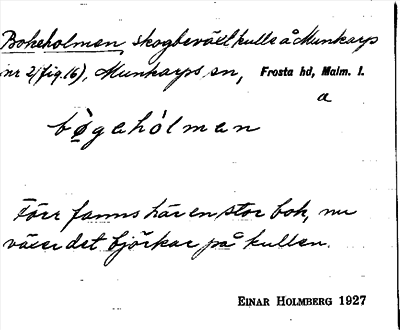 Bokeholmen, skogbeväxt kulle å Munkarps
nr 2 (fig. 16), Munkarps sn, Frosta hd, Malm. l.
a
bǫ̀gahólman
Förr fanns här en stor bok, nu
växer det björkar på kullen.
EINAR HOLMBERG 1927